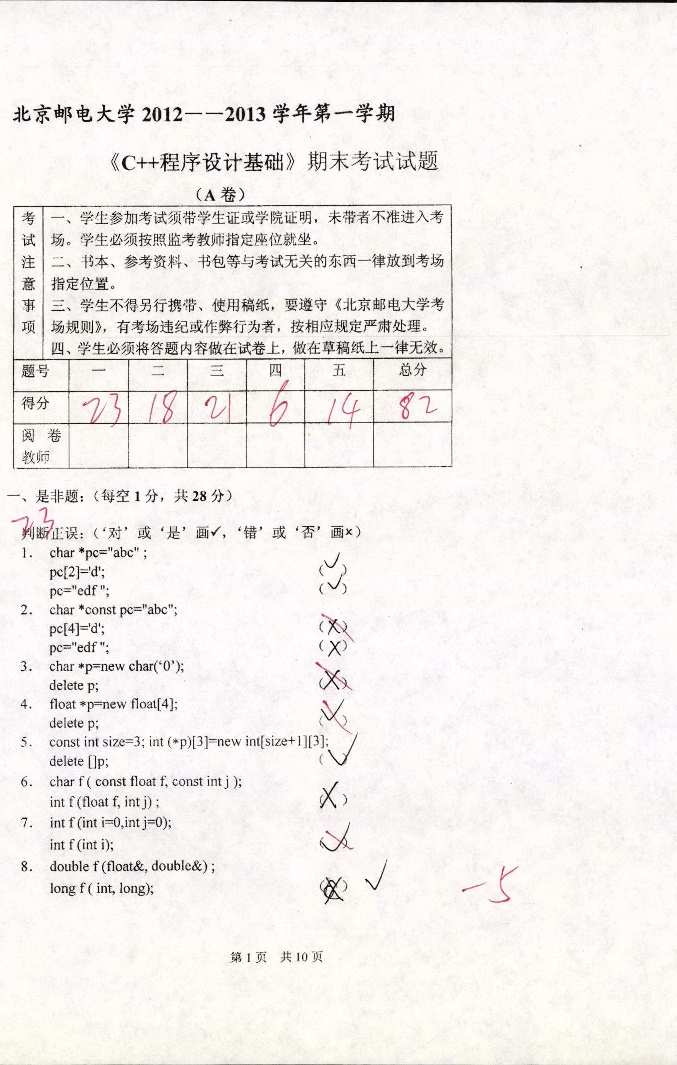 北京邮电大学 2012——2013 学年第一学期
《C++程序设计基础》期末考试试题
（A 卷）
考试注意事项
一、学生参加考试须带学生证或学院证明，未带者不准进入考
场。学生必须按照监考教师指定座位就坐。
二、书本、参考资料、书包等与考试无关的东西一律放到考场
指定位置。
三、学生不得另行携带、使用稿纸，要遵守《北京邮电大学考
场规则》，有考场违纪或作弊行为者，按相应规定严肃处理。
四、学生必须将答题内容做在试卷上，做在草稿纸上一律无效。
题号 一 二 三 四 五 总分
得分 23 18 21 6 14 82
阅 卷
教师
一、是非题：（每空 1 分，共 28 分）
23
判断正误：（‘对’或‘是’画✓，‘错’或‘否’画×）
1. char *pc="abc" ;
pc[2]='d'; (✓)
pc="edf "; (✓)
2. char *const pc="abc";
pc[4]='d'; (X)
pc="edf "; (X)
3. char *p=new char(‘0’);
delete p; (X)
4. float *p=new float[4];
delete p; (✓)
5. const int size=3; int (*p)[3]=new int[size+1][3];
delete []p; (✓)
6. char f ( const float f, const int j );
int f (float f, int j) ; (X)
7. int f (int i=0,int j=0);
int f (int i); (✓)
8. double f (float&, double&) ;
long f ( int, long); ✓
-5
第 1 页 共 10 页